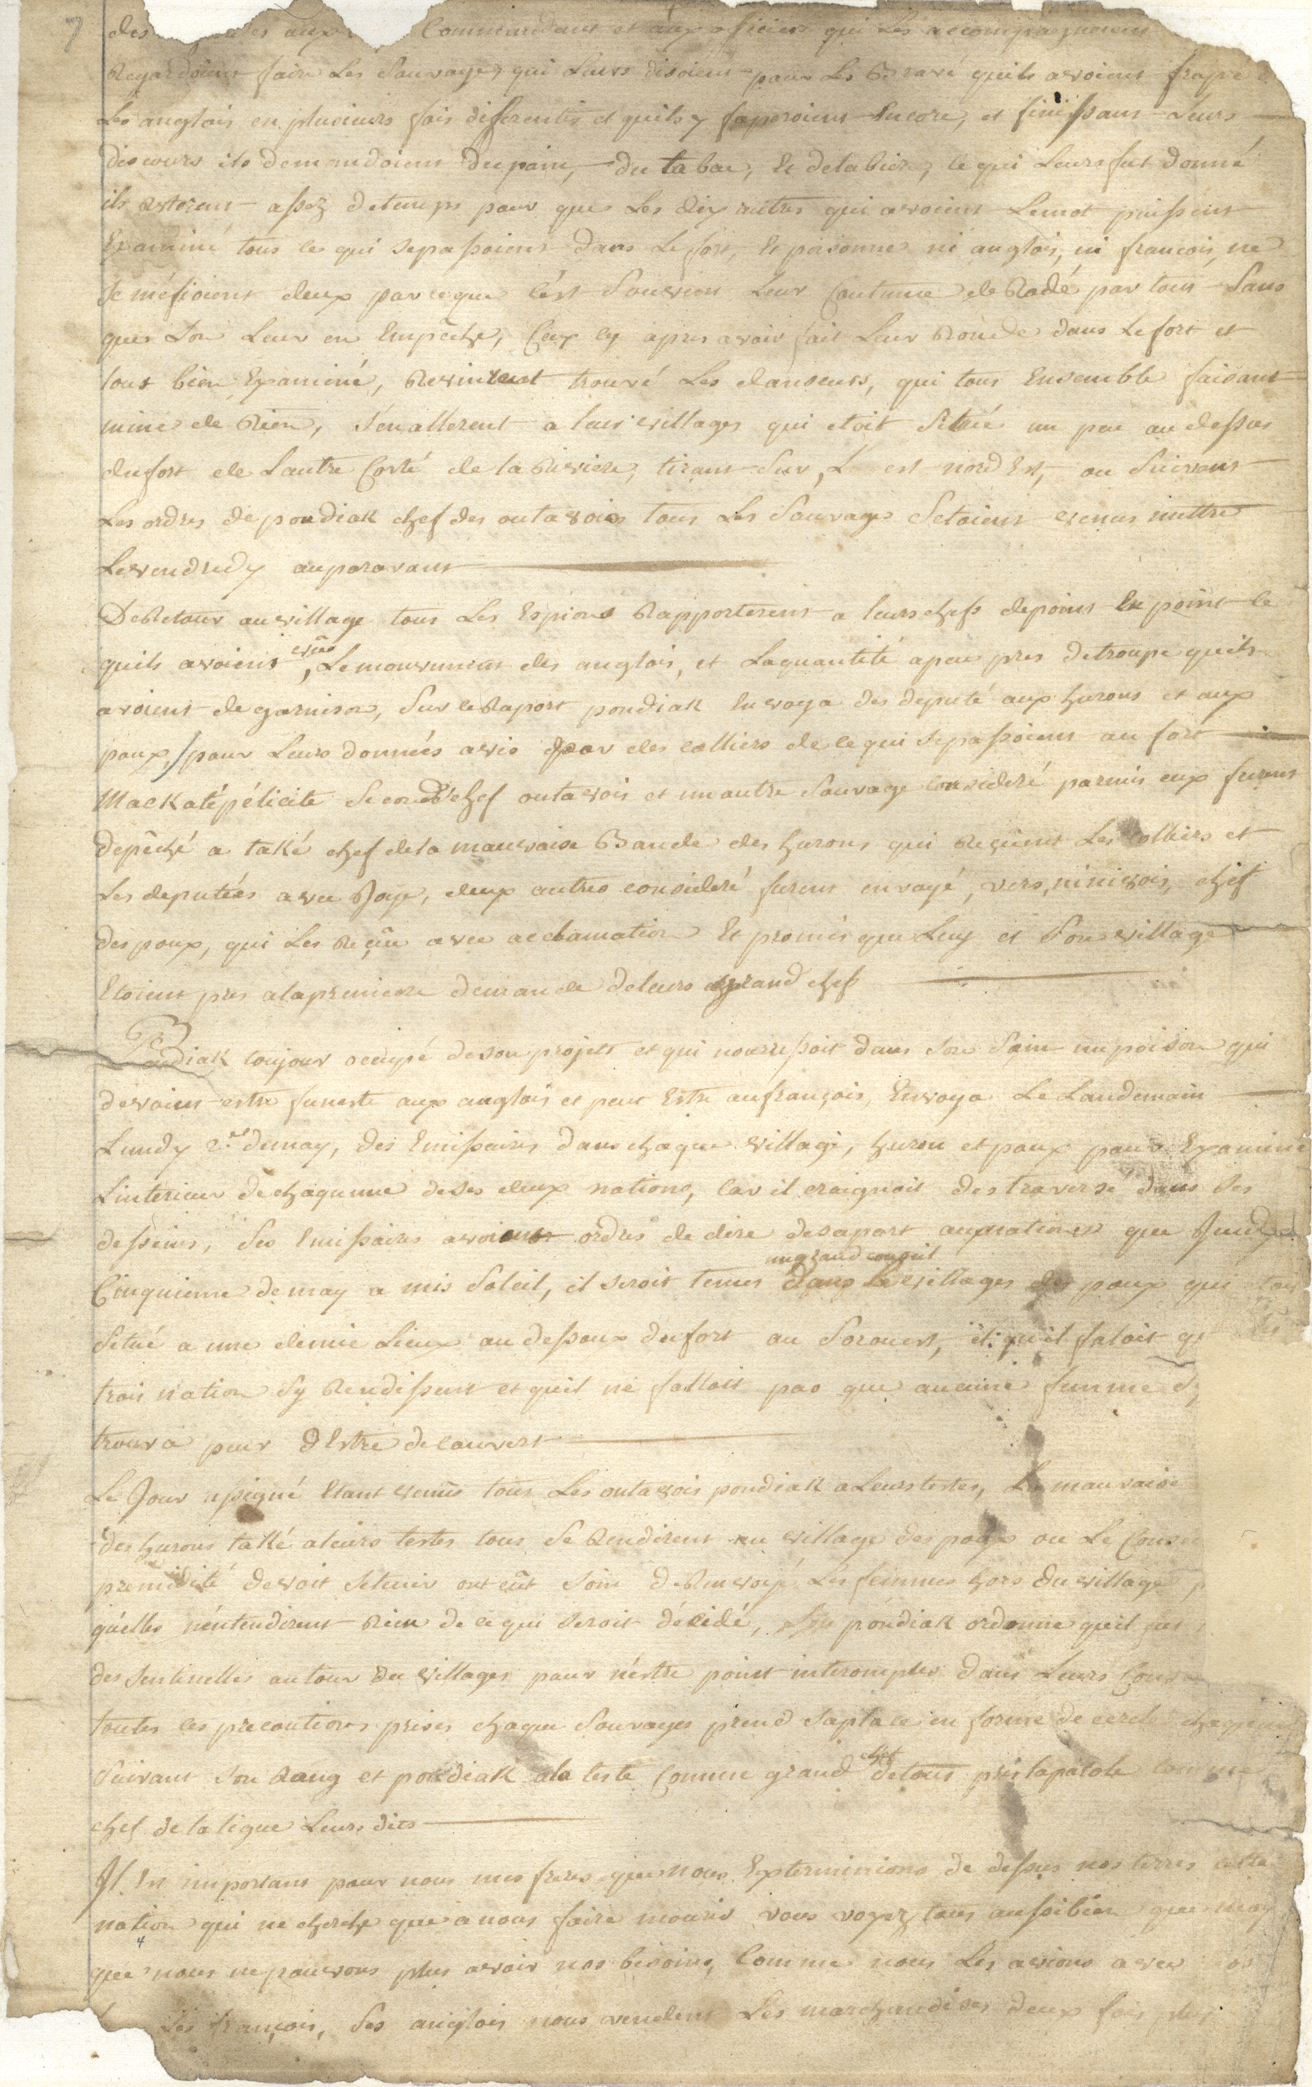 7
des aux Commandant et aux officiers qui Les accompagnoient
Regardoient faire Les Sauvages qui Leurs disoient pour Le Bravé quils avoient frapé
Les anglois en plucieurs fois differentes et quils y faperoient Encore, et finissant Leurs
discours ils demandoient du pain, du tabac, Et de la biere, ce qui Leurs fut donné
ils resterent assez detemps pour que Les dix autres qui avoient Lemot puissent
Examiné tous ce qui sepassoient dans Le fort, Et personne ni anglois, ni francois, ne
Se méfioient deux par ce que cést Souvient Leur Coutume de Rodé par tous Sans
que Lon Leur en Empêche, Ceux cy apres avoir fait Leur Ronde dans Le fort et
tout bien Examiné, Revinrent trouvé Les danseurs, qui tous Ensemble faisant
mine de Rien, Senallerent a leur villages qui etoit Sitüé un peu au dessus
dufort de Lautre Corté de la Riviere, tirant Sur L'est nord Est, ou Suivant
Les ordres de pondiak chef des outavois tous Les Sauvages Setoient venus mettre
Levendredy auparavant
De Retour au village tous Les Espions Rapporterent a leurs chefs depoint En point ce
quils avoient vûs, Le mouvement des anglois, et Laquantité apeu pres detroupe quils
avoient de garnison, Sur le Raport pondiak Envoya des deputé aux hurons et aux
poux, pour Leurs données avis par des colliers de ce qui sepassoient au fort
Mackatépélicite Second chef outavois et un autre Sauvage consideré parmis eux furent
depêché a také chef de la mauvaise Bande des hurons qui Reçûrent Les colliers et
Les deputées avec Joye, deux autres consideré furent envoyé, vers, ninivois, chef
des poux, qui Les Reçû avec acclamation Et promis que Luy et Son village
Etoient pres a la premiere demande de leurs grand chefs
Pondiak toujour occupé de son projets et qui nourrissoit dans Son Sain un poison qui
devoient estre funeste aux anglois et peut Estre au françois, Envoya Le Landemain
Lundy 2. demay, des Emissaires dans chaque village, huron et poux pour Examiné
Linterieur de chaqunne de ses deux nations, car il craignoit destraversé dans ses
desseins, Ses Emissaires avoient ordres de dire desapart aux nationes que Jeudy
Cinquieme demay a mis Soleil, il seroit tenus un grand conseil dans Le villages des poux qui
Sitüé a une demie Lieux au dessous dufort au Sorouest, et quil faloit
trois nation Sy Rendissent et quil ne falloit pas que aucune femme
trouva peur dEstre decouvert
Le Jour assigné Etant venûs tous Les outavois pondiak a Leurs testes, La mauvaise
des hurons také a leurs testes tous Se Rendirent au village des poux ou Le
premidité devoit Setenir ont eût Soin deRenvoyé Les femmes hors du village
qu'elles néntendirent Rien de ce qui seroit décidé, pondiak ordonne quil
des Sentinelles autour du villages pour néstre point interompus dans Leurs
toutes ces precautions prises chaque Sauvages prend saplace en forme de cercle
Suivant Son Rang et pondiak a la teste Comme grand chef detous prit laparole comme
chef de la ligue Leurs dits
Il Est important pour nous mes freres que nous Exterminions de dessus nos terres cette
nation qui ne cherche que a nous faire mourir vous voyez tous aussi bien que moy
que nous ne pouvons plus avoir nos besoins, Comme nous Les avions avec
Les françois, Les anglois nous vendent Les marchandises deux fois